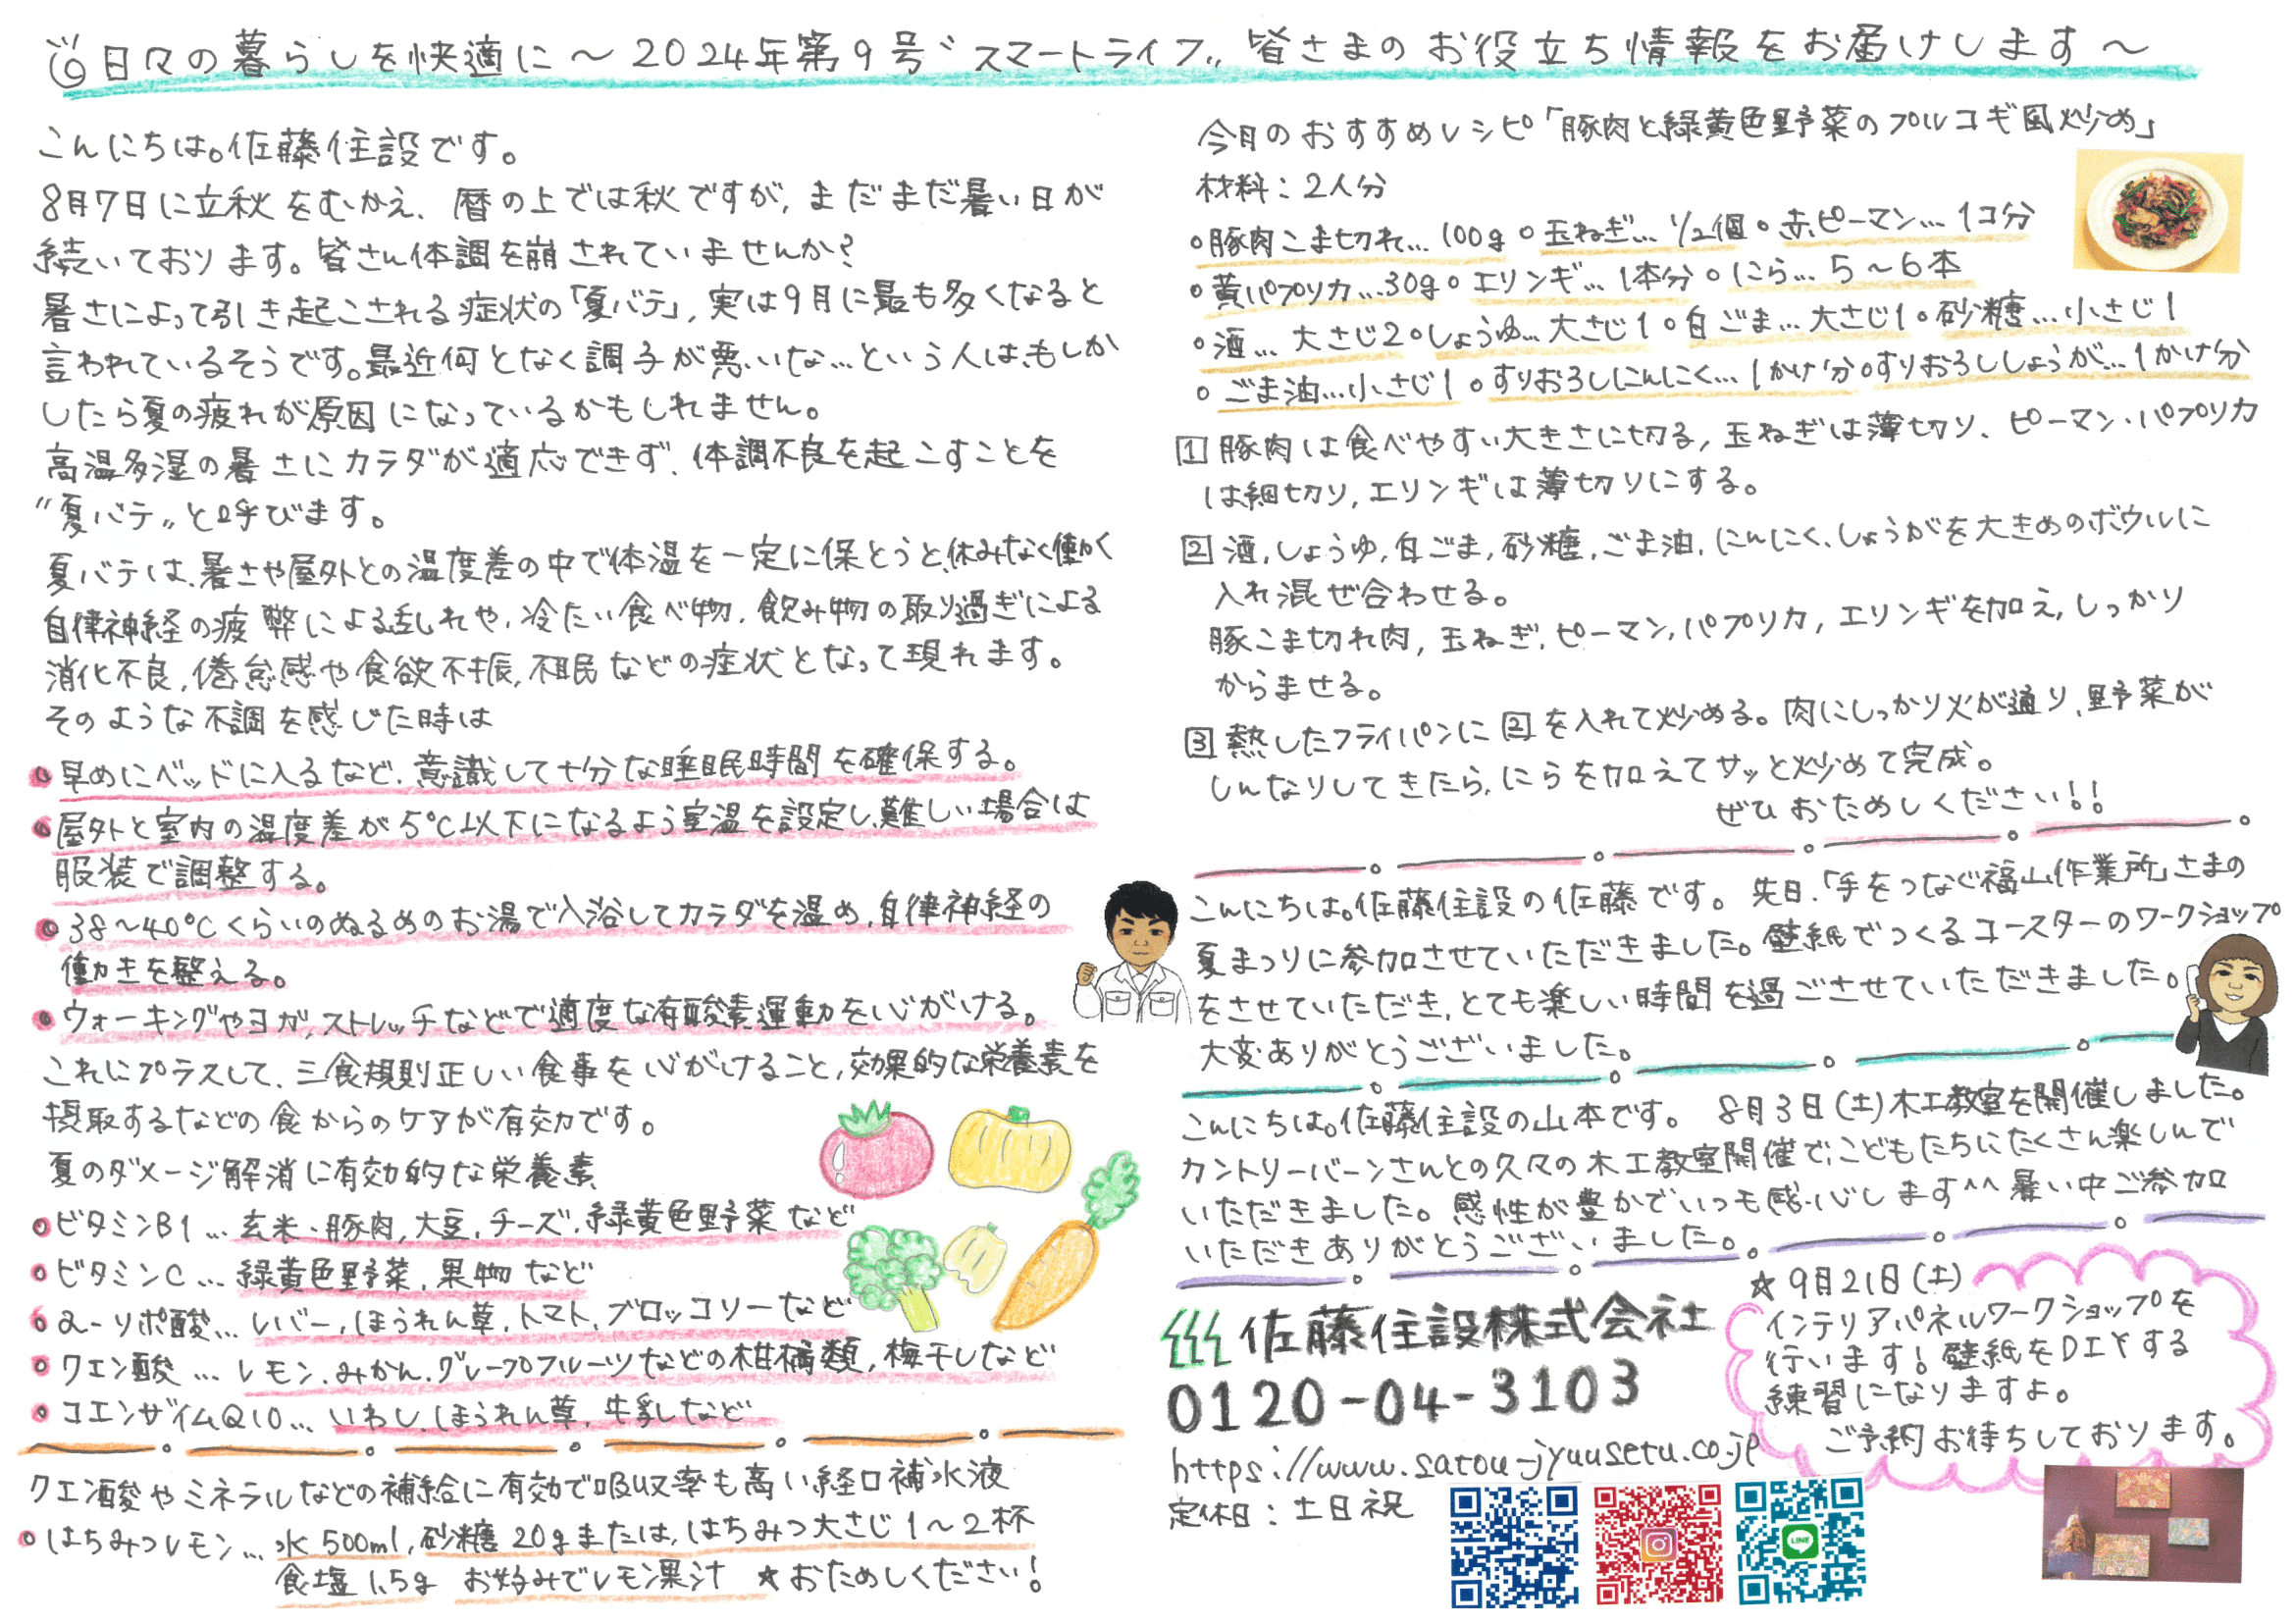 日々の暮らしを快適に～2024年第9号〝スマートライフ〟皆さまのお役立ち情報をお届けします～
こんにちは。佐藤住設です。
8月7日に立秋をむかえ、暦の上では秋ですが、まだまだ暑い日が
続いております。皆さん体調を崩されていませんか?
暑さによって引き起こされる症状の「夏バテ」、実は9月に最も多くなると
言われているそうです。最近何となく調子が悪いな…という人は、もしか
したら夏の疲れが原因になっているかもしれません。
高温多湿の暑さにカラダが適応できず、体調不良を起こすことを
〝夏バテ〟と呼びます。
夏バテは、暑さや屋外との温度差の中で体温を一定に保とうと、休みなく働く
自律神経の疲弊による乱れや、冷たい食べ物、飲み物の取り過ぎによる
消化不良、倦怠感や食欲不振、不眠などの症状となって現れます。
そのような不調を感じた時は
◦早めにベッドに入るなど、意識して十分な睡眠時間を確保する。
◦屋外と室内の温度差が5℃以下になるよう室温を設定し、難しい場合は
服装で調整する。
◦38～40℃くらいのぬるめのお湯で入浴してカラダを温め、自律神経の
働きを整える。
◦ウォーキングやヨガ、ストレッチなどで適度な有酸素運動を心がける。
これにプラスして、三食規則正しい食事を心がけること、効果的な栄養素を
摂取するなどの食からのケアが有効です。
夏のダメージ解消に有効的な栄養素
◦ビタミンB1…玄米、豚肉、大豆、チーズ、緑黄色野菜など
◦ビタミンC…緑黄色野菜、果物など
◦α-リポ酸…レバー、ほうれん草、トマト、ブロッコリーなど
◦クエン酸…レモン、みかん、グレープフルーツなどの柑橘類、梅干しなど
◦コエンザイムQ10…いわし、ほうれん草、牛乳など
クエン酸やミネラルなどの補給に有効で吸収率も高い経口補水液
◦はちみつレモン…水500ml、砂糖20gまたは、はちみつ大さじ1～2杯
食塩1.5g お好みでレモン果汁 ★おためしください!
今月のおすすめレシピ「豚肉と緑黄色野菜のプルコギ風炒め」
材料:2人分
◦豚肉こま切れ…100g◦玉ねぎ…1/2個◦赤ピーマン…1コ分
◦黄パプリカ…30g◦エリンギ…1本分◦にら…5～6本
◦酒…大さじ2◦しょうゆ…大さじ1◦白ごま…大さじ1◦砂糖…小さじ1
◦ごま油…小さじ1◦すりおろしにんにく…1かけ分◦すりおろししょうが…1かけ分
1 豚肉は食べやすい大きさに切る、玉ねぎは薄切り、ピーマン・パプリカ
は細切り、エリンギは薄切りにする。
2 酒、しょうゆ、白ごま、砂糖、ごま油、にんにく、しょうがを大きめのボウルに
入れ混ぜ合わせる。
豚こま切れ肉、玉ねぎ、ピーマン、パプリカ、エリンギを加え、しっかり
からませる。
3 熱したフライパンに2を入れて炒める。肉にしっかり火が通り、野菜が
しんなりしてきたら、にらを加えてサッと炒めて完成。
ぜひおためしください!!
こんにちは。佐藤住設の佐藤です。先日、「手をつなぐ福山作業所」さまの
夏まつりに参加させていただきました。壁紙でつくるコースターのワークショップ
をさせていただき、とても楽しい時間を過ごさせていただきました。
大変ありがとうございました。
こんにちは。佐藤住設の山本です。 8月3日(土)木工教室を開催しました。
カントリーバーンさんとの久々の木工教室開催で、こどもたちにたくさん楽しんで
いただきました。感性が豊かでいつも感心します^^ 暑い中ご参加
いただきありがとうございました。
佐藤住設株式会社
0120-04-3103
https://www.satou-jyuusetu.co.jp
定休日:土日祝
★9月21日(土)
インテリアパネルワークショップを
行います!壁紙をDIYする
練習になりますよ。
ご予約お待ちしております。
LINE